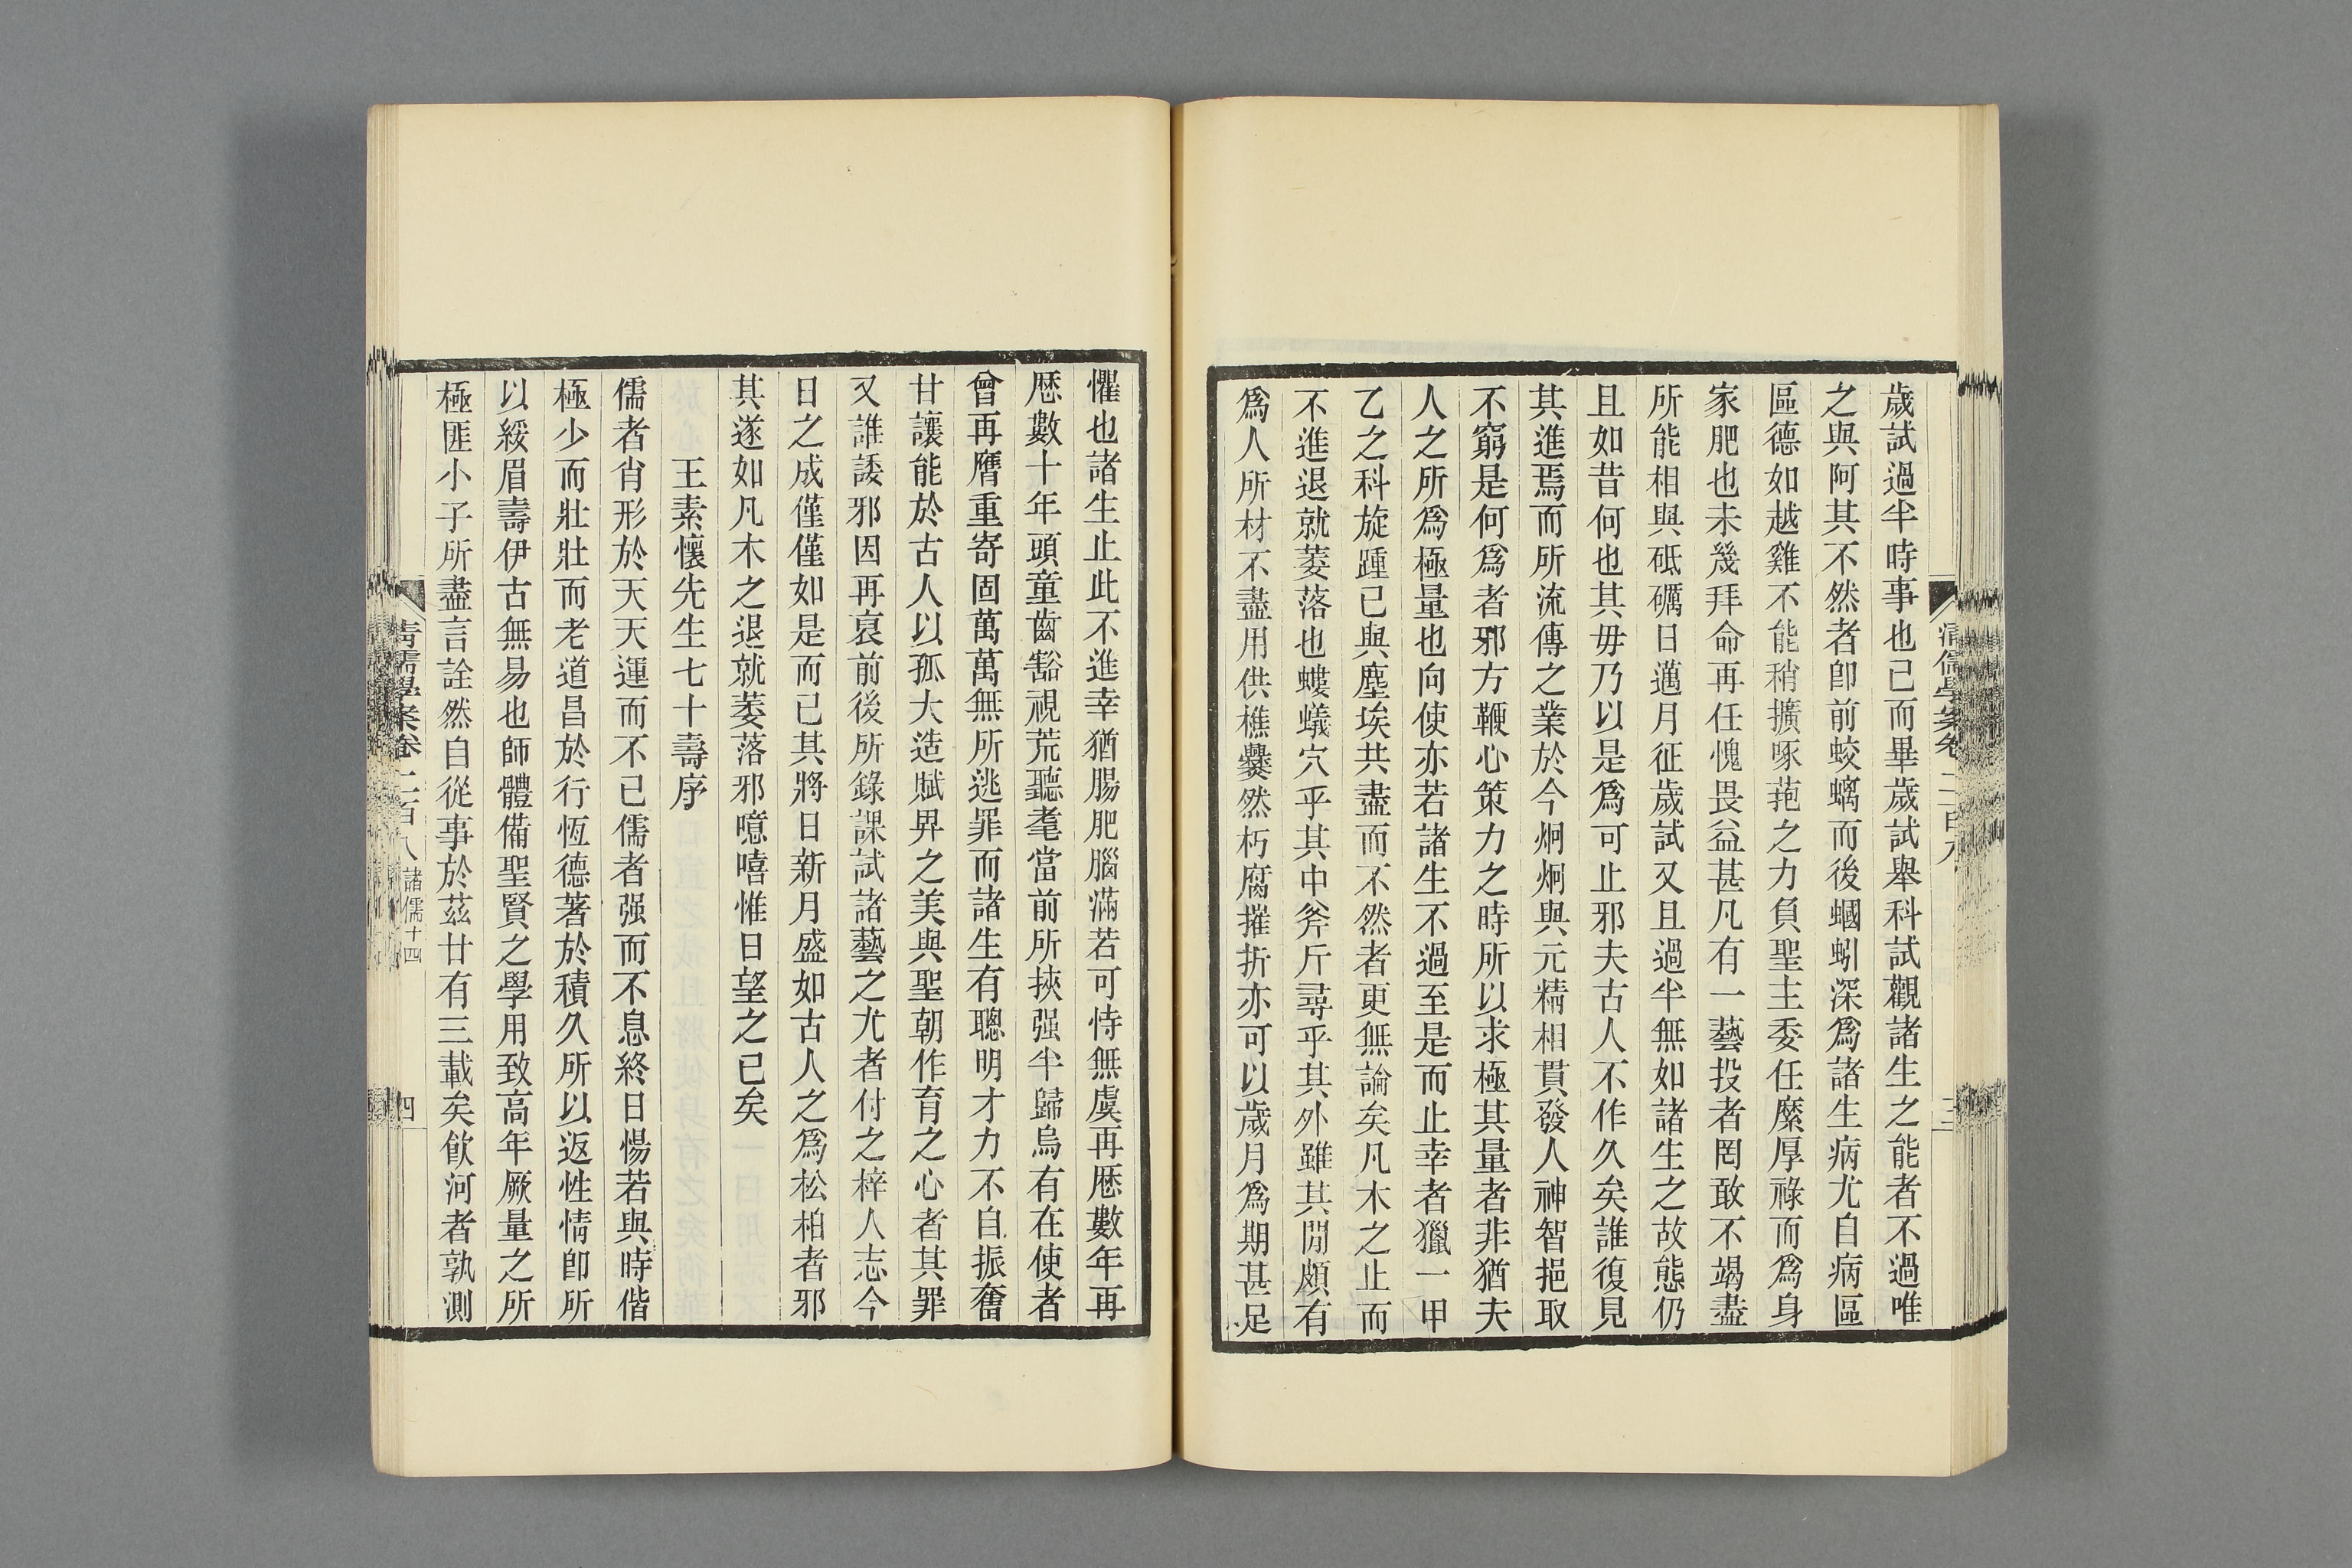 歲試過半時事也已而畢歲試舉科試觀諸生之能者不過唯
之與阿其不然者卽前蛟螭而後蟈蚓深爲諸生病尤自病區
區德如越雞不能稍擴啄菢之力負聖主委任縻厚祿而爲身
家肥也未幾拜命再任愧畏益甚凡有一藝投者罔敢不竭盡
所能相與砥礪日邁月征歲試又且過半無如諸生之故態仍
且如昔何也其毋乃以是爲可止邪夫古人不作久矣誰復見
其進焉而所流傳之業於今炯炯與元精相貫發人神智挹取
不窮是何爲者邪方鞭心策力之時所以求極其量者非猶夫
人之所爲極量也向使亦若諸生不過至是而止幸者獵一甲
乙之科旋踵已與塵埃共盡而不然者更無論矣凡木之止而
不進退就萎落也螻蟻穴乎其中斧斤尋乎其外雖其閒頗有
爲人所材不盡用供樵爨然朽腐摧折亦可以歲月爲期甚足
清儒學案卷二百八
三
懼也諸生止此不進幸猶腸肥腦滿若可恃無虞再厯數年再
厯數十年頭童齒豁視荒聽耄當前所挾强半歸烏有在使者
曾再膺重寄固萬萬無所逃罪而諸生有聰明才力不自振奮
甘讓能於古人以孤大造賦畀之美與聖朝作育之心者其罪
又誰諉邪因再裒前後所錄課試諸藝之尤者付之梓人志今
日之成僅僅如是而已其將日新月盛如古人之爲松柏者邪
其遂如凡木之退就萎落邪噫嘻惟日望之已矣
王素懷先生七十壽序
儒者肖形於天天運而不已儒者强而不息終日惕若與時偕
極少而壯壯而老道昌於行恆德著於積久所以返性情卽所
以綏眉壽伊古無易也師體備聖賢之學用致高年厥量之所
極匪小子所盡言詮然自從事於茲廿有三載矣飮河者孰測
清儒學案卷二百八 諸儒十四
四